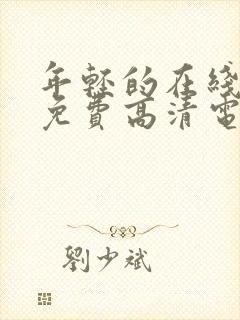 年轻的在线
免費高清電
劉少斌